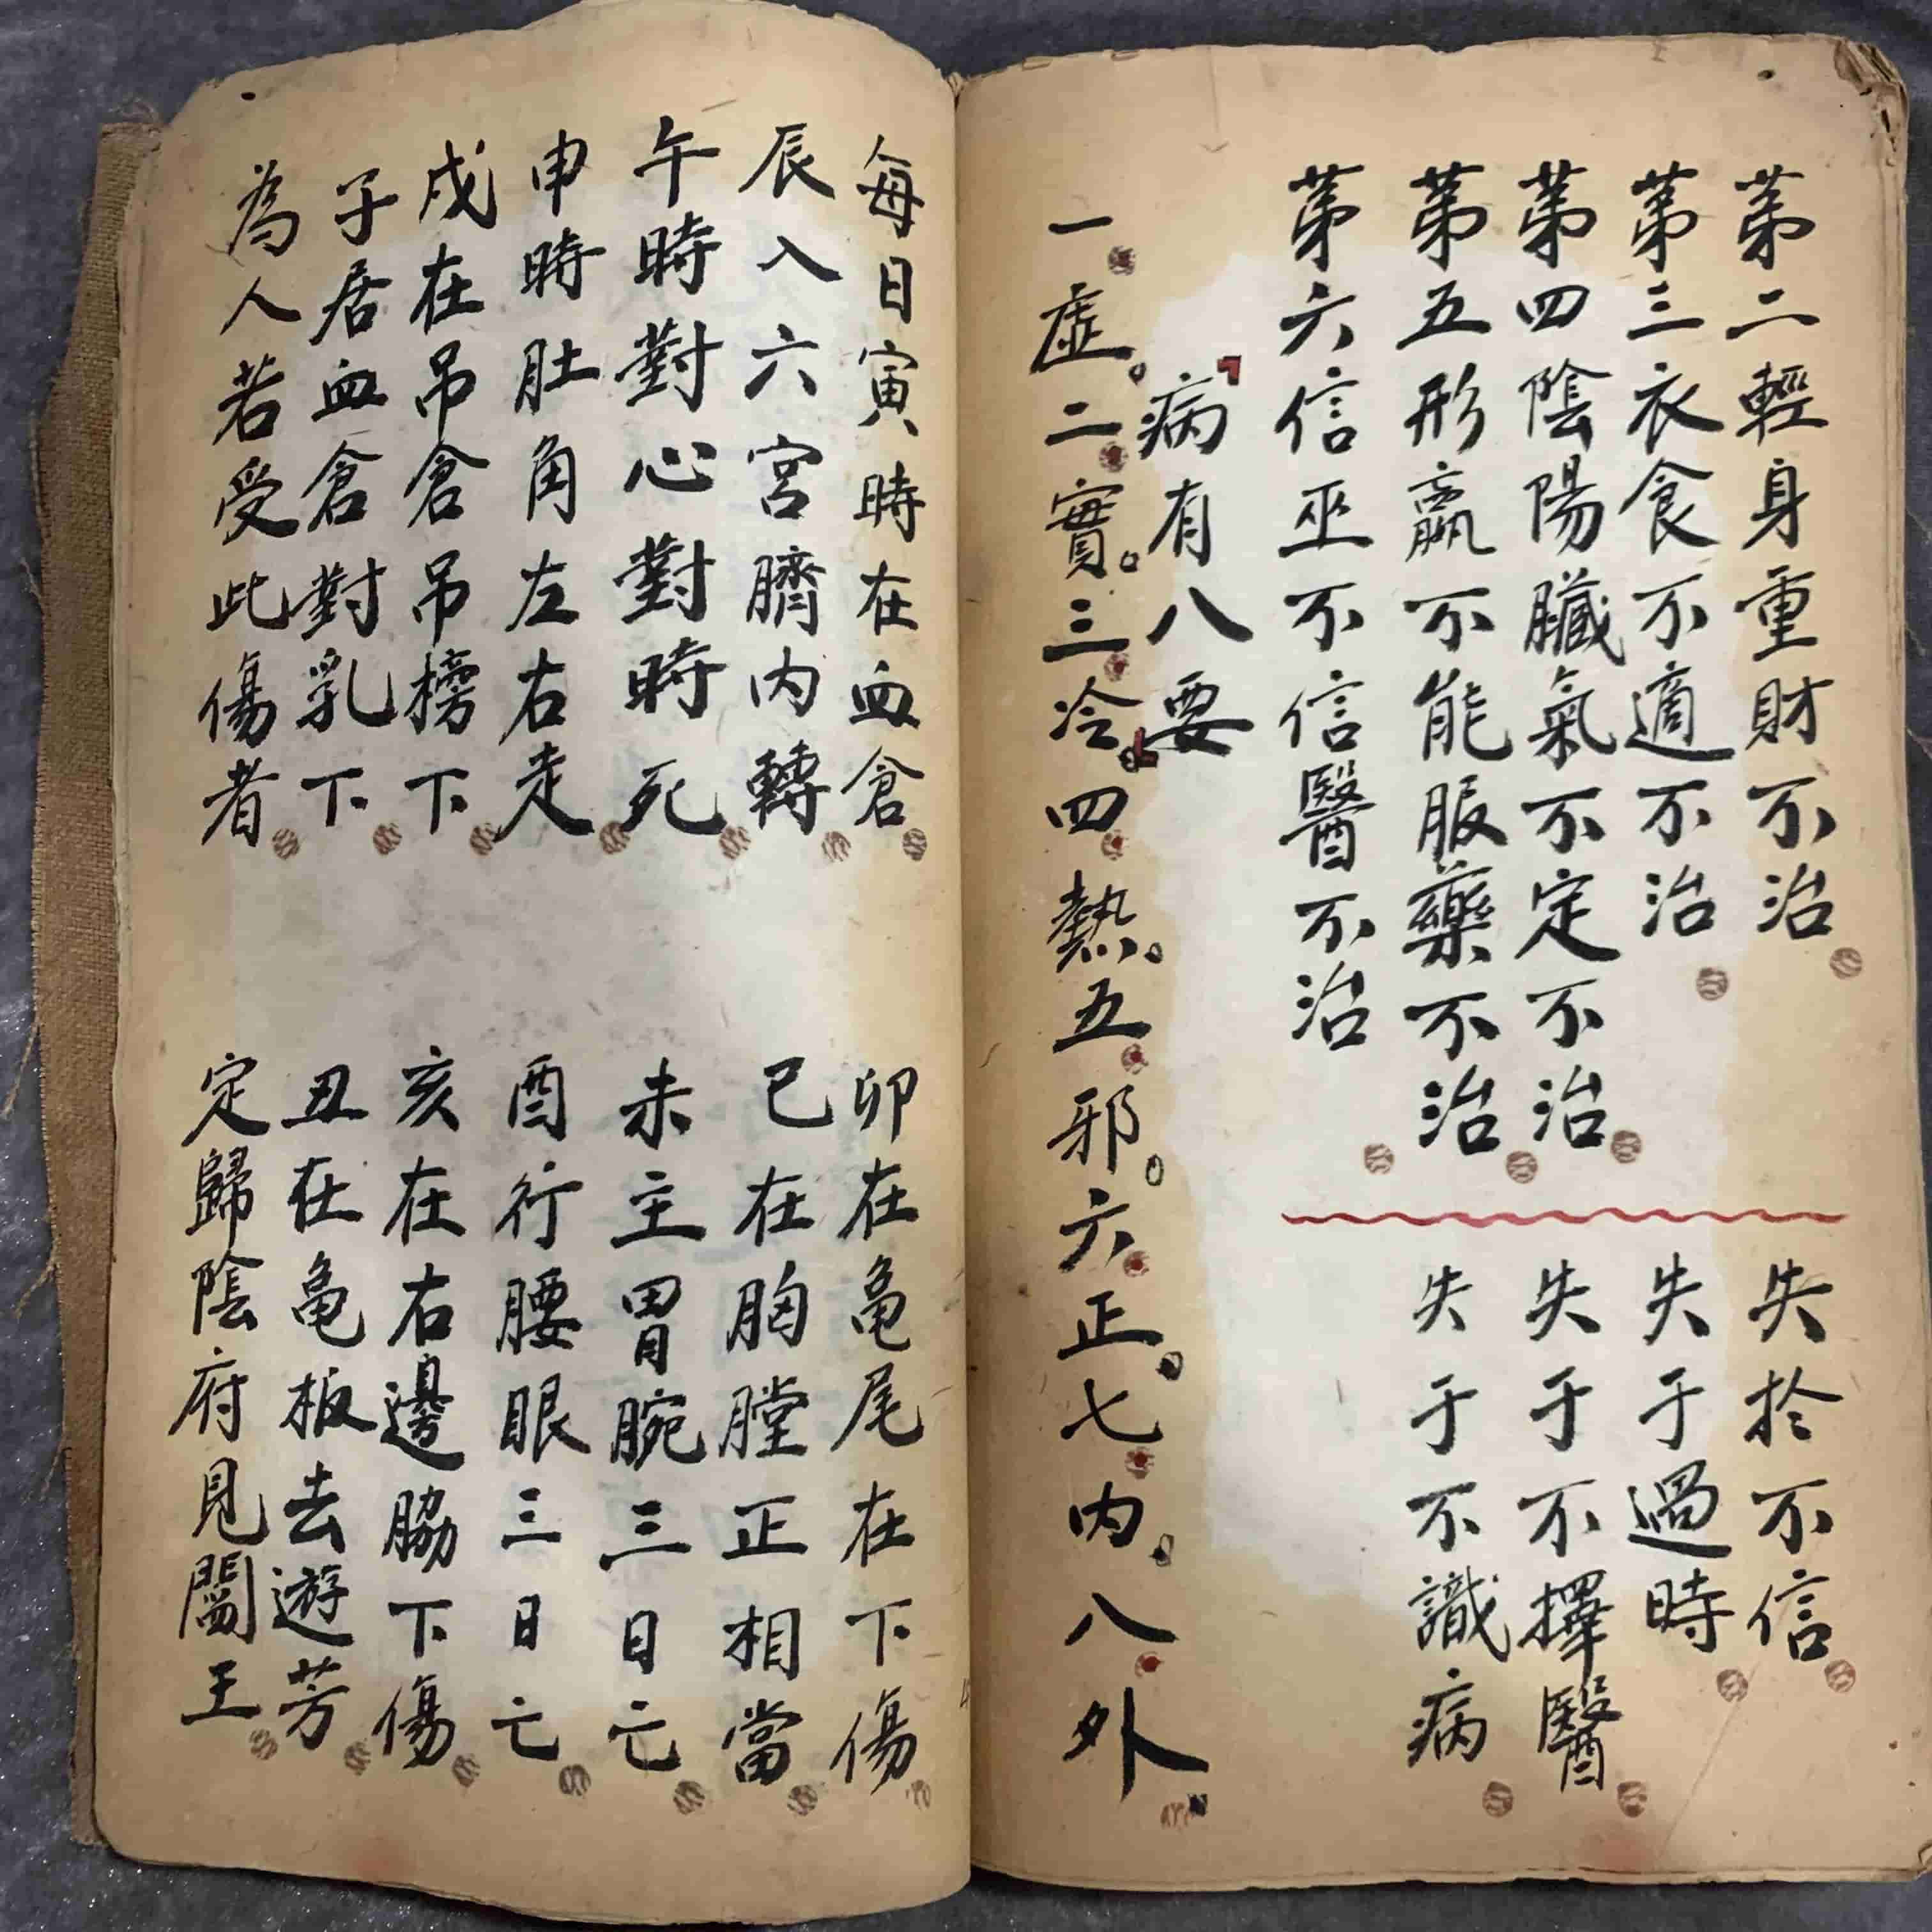 第二輕身重財不治
第三衣食不適不治
第四陰陽臟氣不定不治
第五形羸不能服藥不治
第六信巫不信醫不治
失於不信
失于過時
失于不擇醫
失于不識病
病有八要
一虛。二實。三冷。四熱。五邪。六正。七內。八外。
每日寅時在血倉
卯在龜尾在下傷
辰入六宮臍內轉
巳在胸膛正相當
午時對心對時死
未主胃腕三日亡
申時肚角左右走
酉行腰眼三日亡
戌在吊倉吊榜下
亥在右邊脇下傷
子居血倉對乳下
丑在龜板去遊芳
為人若受此傷者
定歸陰府見閻王